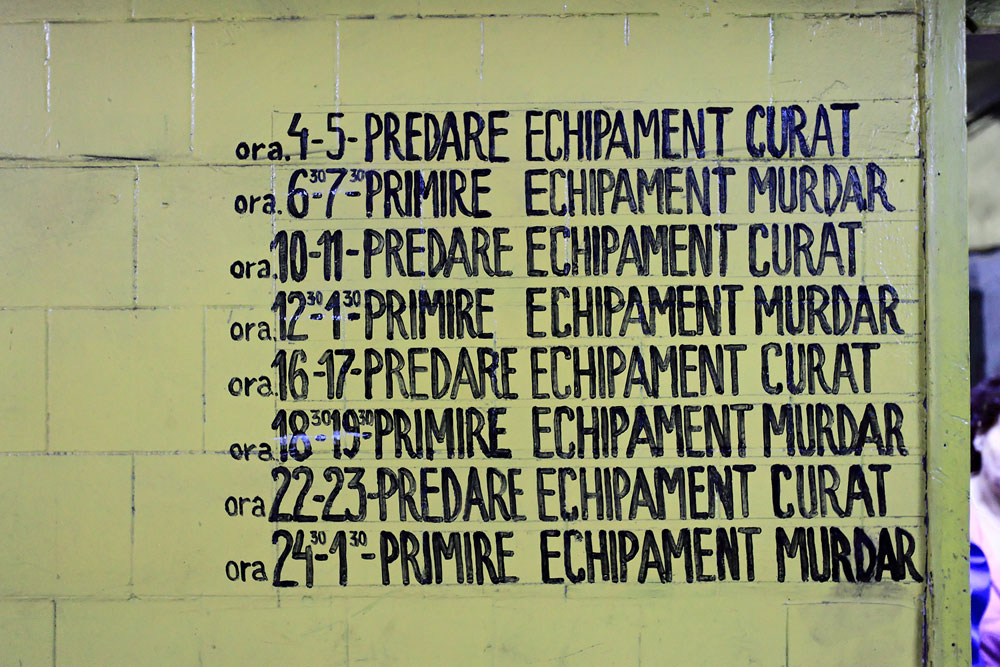 ora. 4-5-PREDARE ECHIPAMENT CURAT
ora. 6³⁰-7³⁰-PRIMIRE ECHIPAMENT MURDAR
ora. 10-11-PREDARE ECHIPAMENT CURAT
ora. 12³⁰-1³⁰-PRIMIRE ECHIPAMENT MURDAR
ora. 16-17-PREDARE ECHIPAMENT CURAT
ora. 18³⁰-19³⁰-PRIMIRE ECHIPAMENT MURDAR
ora 22-23-PREDARE ECHIPAMENT CURAT
ora 24³⁰-1³⁰-PRIMIRE ECHIPAMENT MURDAR